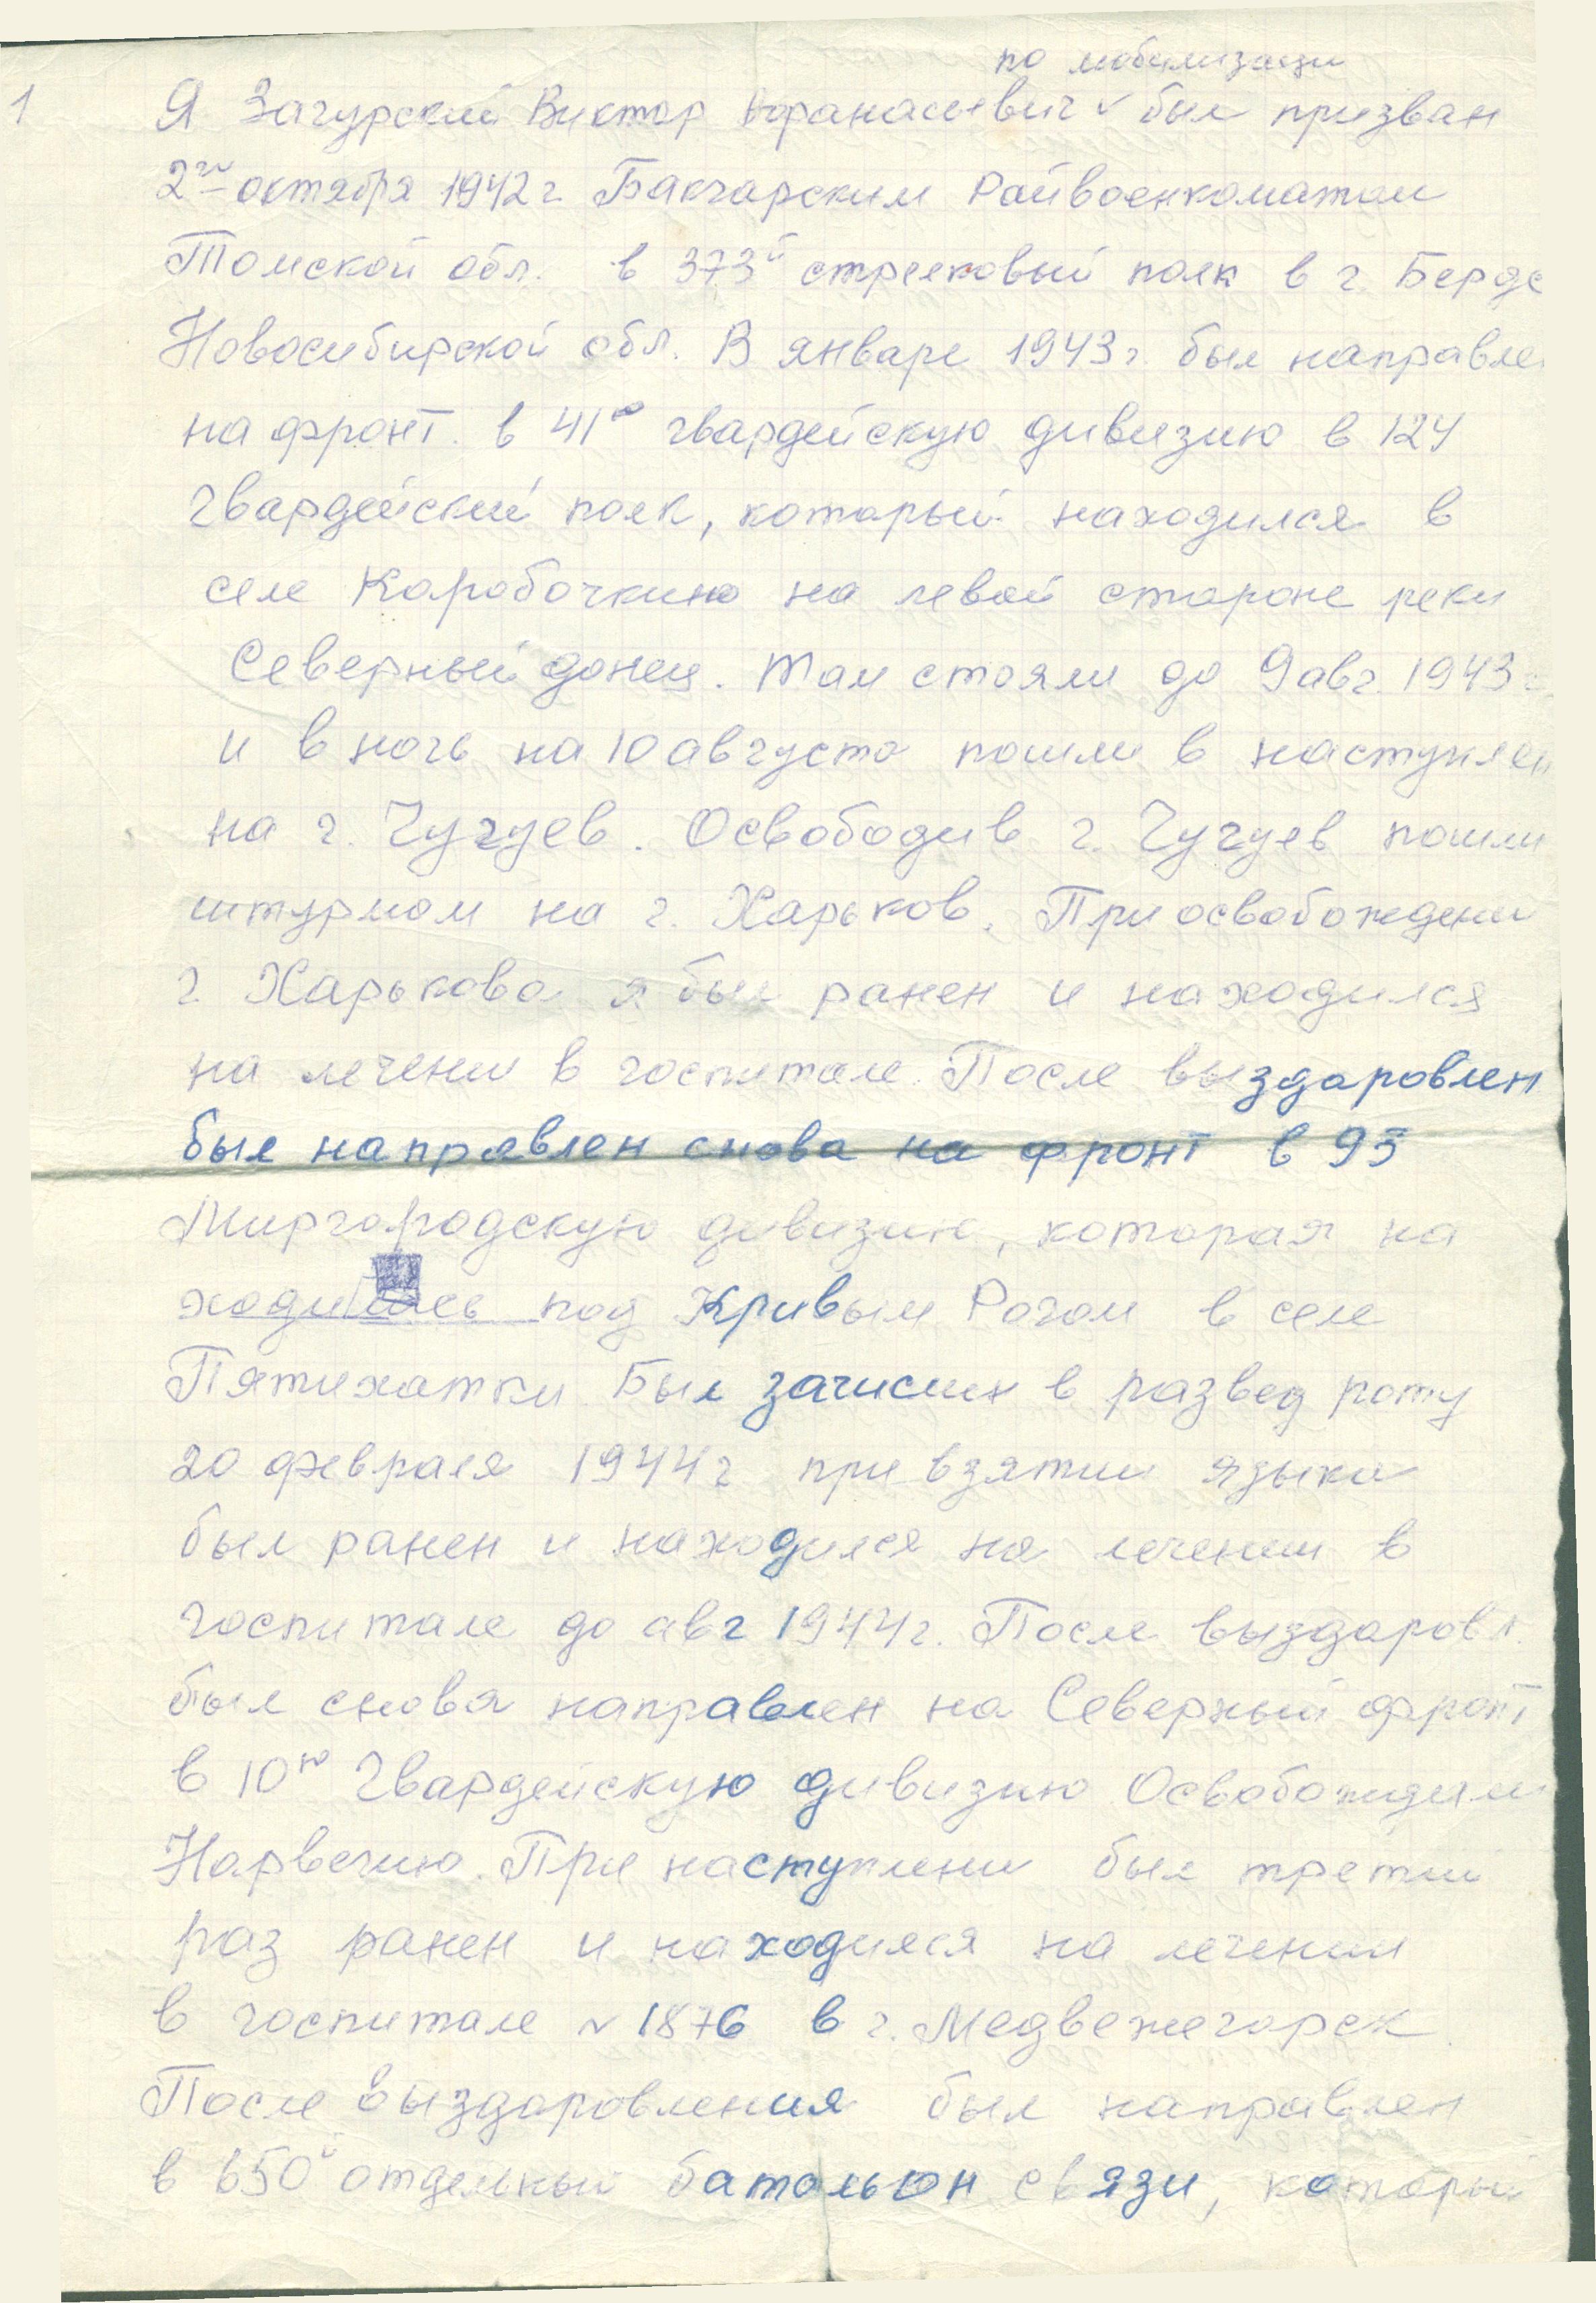 по мобилизации
1 Я Загурский Виктор Афанасьевич был призван
2го октября 1942 г. Бакчарским Райвоенкоматом
Томской обл. в 373й стрелковый полк в г. Бердс
Новосибирской обл. В январе 1943 г. был направле
на фронт. в 41ю гвардейскую дивизию в 124
Гвардейский полк, который находился в
селе Коробочкино на левой стороне реки
Северный донец. Там стояли до 9 авг. 1943 г
и в ночь на 10 августа пошли в наступлен
на г. Чугуев. Освободив г. Чугуев пошли
штурмом на г. Харьков. При освобождени
г. Харькова я был ранен и находился
на лечени в госпитале. После выздаровлен
был направлен снова на фронт в 93
Миргородскую дивизию, которая на
ходилась под Кривым Рогом в селе
Пятихатки. Был зачислен в развед роту
20 февраля 1944 г при взятии языка
был ранен и находился на лечении в
госпитале до авг 1944 г. После выздаровл.
был снова направлен на Северный фронт
в 10ю Гвардейскую дивизию Освобождали
Норвегию. При наступлени был третий
раз ранен и находился на лечении
в госпитале № 1876 в г. Медвежегорск.
После выздоровления был направлен
в 650й отдельный батольон связи, который